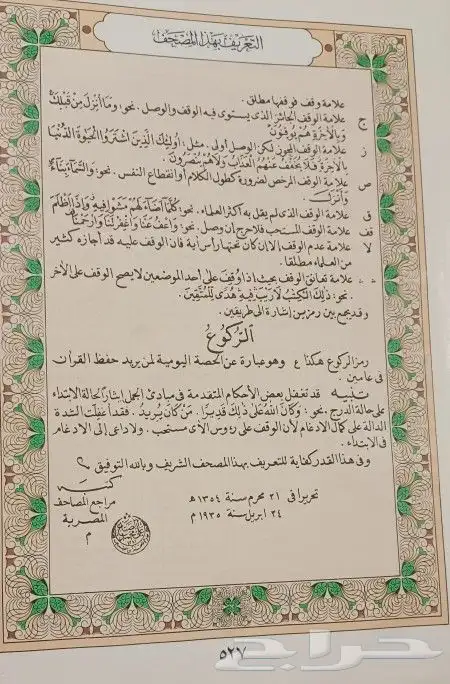 التعريف بهذا المصحف
علامة وقف فوقفها مطلق .
ج علامة الوقف الجائز الذى يستوى فيه الوقف والوصل . نحو: وَمَا أُنزِلَ مِن قَبْلِكَ
وَبِالْآخِرَةِ هُمْ يُوقِنُونَ
ز علامة الوقف المجوز لكن الوصل أولى . مثل: أُولَٰئِكَ الَّذِينَ اشْتَرَوُا الْحَيَوٰةَ الدُّنْيَا
بِالْآخِرَةِ فَلَا يُخَفَّفُ عَنْهُمُ الْعَذَابُ وَلَا هُمْ يُنصَرُونَ .
ص علامة الوقف المرخص لضرورة كطول الكلام أو انقطاع النفس . نحو: وَالسَّمَاءَ بِنَاءً
وَأَنزَلَ .
ق علامة الوقف الذى لم يقل به أكثر العلماء . نحو: كُلَّمَا أَضَاءَ لَهُم مَّشَوْا فِيهِ وَإِذَا أَظْلَمَ
قف علامة الوقف المستحب فلا حرج إن وصل . نحو: وَاعْفُ عَنَّا وَاغْفِرْ لَنَا وَارْحَمْنَا
لا علامة عدم الوقف إلا إن كان تحتها رأس آية فان الوقف عليه قد أجازه كثير
من العلماء مطلقا .
علامة تعانق الوقف بحيث إذا وُقِفَ على أحد الموضعين لا يصح الوقف على الآخر
. نحو: ذَٰلِكَ الْكِتَٰبُ لَا رَيْبَ فِيهِ هُدًى لِّلْمُتَّقِينَ .
وقد يجمع بين رمزين إشارة إلى طريقين .
الركوع
رمز الركوع هكذا ع وهو عبارة عن الحصة اليومية لمن يريد حفظ القرآن
فى عامين .
تنبيه قد تغفل بعض الأحكام المتقدمة فى مبادئ الجمل إيثارا لحالة الابتداء
على حالة الدرج . نحو : وَكَانَ اللَّهُ عَلَىٰ ذَٰلِكَ قَدِيرًا . مَّن كَانَ يُرِيدُ . فقد أغفلت الشدة
الدالة على كمال الادغام لأن الوقف على رءوس الآى مستحب . ولا داعى إلى الادغام
فى الابتداء .
وفى هذا القدر كفاية للتعريف بهذا المصحف الشريف وبالله التوفيق
كتبه
تحريرا فى ٢١ محرم سنة ١٣٥٤ هـ
مراجع المصاحف
٢٤ ابريل سنة ١٩٣٥ م
المصرية
م
٥٢٧
حراج